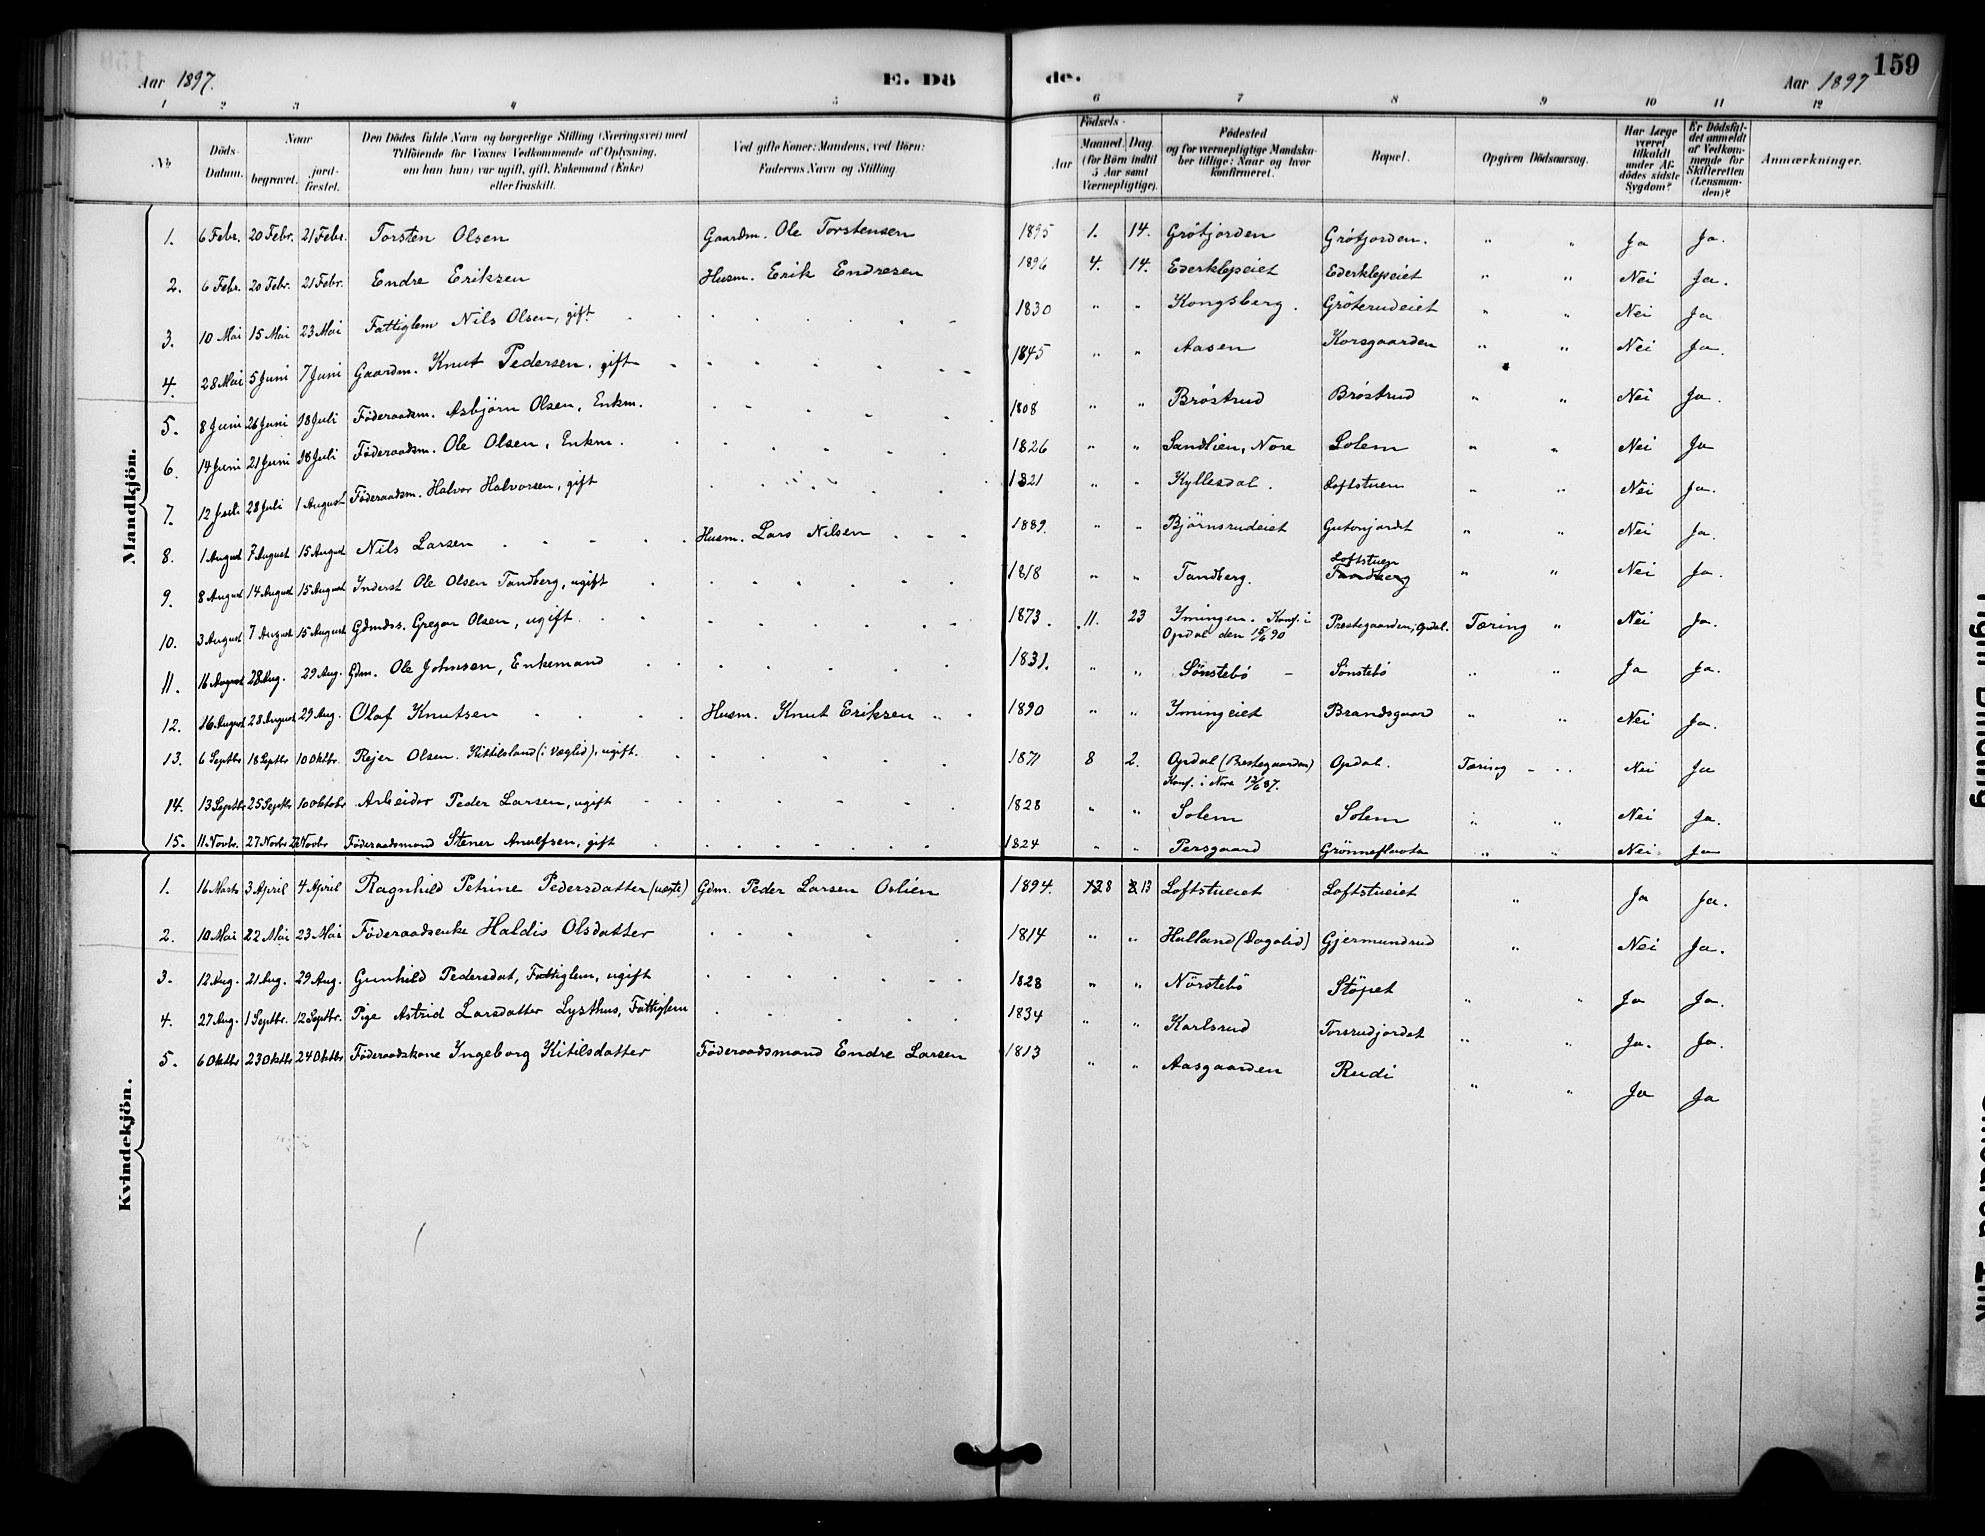 159
Aar 1897.
E. Dö
de.
Aar 1897
1 2 3 4 5 6 7 8 9 10 11 12
No
Döds-Datum.
Naar
begravet.
jord-fæstet.
Den Dödes fulde Navn og borgerlige Stilling (Næringsvei) med
Tilföiende for Voxnes Vedkommende af Oplysning,
om han (hun) var ugift, gift, Enkemand (Enke)
eller fraskilt.
Ved gifte Koner: Mandens, ved Börn:
Faderens Navn og Stilling
Födsels-
Aar
Maaned. Dag
(for Börn indtil
5 Aar samt
Værnepligtige).
Födested
og for værnepligtige Mandska-
ber tillige: Naar og hvor
konfirmeret.
Bopæl.
Opgiven Dödsaarsag.
Har Læge
været
tilkaldt
under Af-
dødes sidste
Sygdom?
Er Dödsfal-
det anmeldt
af Vedkom-
mende for
Skifteretten
(Lensman-
den)?
Anmærkninger.
Mandkjön.
1. 6 Febr. 20 Febr. 21 Febr. Torsten Olsen Gaardm. Ole Torstensen 1895 1. 14. Gröfjorden Gröfjorden. " " Ja Ja.
2. 6 Febr. 20 Febr. 21 Febr. Endre Eriksen Husm. Erik Endresen 1896 4. 14. Ederklepeiet Ederklepeiet " " Nei Ja.
3. 10 Mai 15 Mai 23 Mai Fattiglem Nils Olsen, gift 1830 " " Kongsberg. Gröterudeiet " " Nei Ja
4. 28 Mai 5 Juni 7 Juni Gaardm. Knut Pedersen, gift 1845 " " Aasen Korsgaarden " " Nei Ja.
5. 8 Juni 26 Juni 18 Juli Föderaadsm. Asbjörn Olsen, Enkm. 1808 " " Bröstrud Bröstrud " " Nei Ja.
6. 14 Juni 21 Juni 18 Juli Föderaadsm. Ole Olsen, Enkm. 1826 " " Sandlien, Nore Solem " " Nei Ja
7. 12 Juli 28 Juli 1 August Föderaadsm. Halvor Halvorsen, gift 1821 " " Kyllesdal. Loftstuen " " Nei Ja.
8. 1 August 7 August 15 August Nils Larsen Husm. Lars Nilsen 1889. " " Björnsrudeiet Gutonjordet " " Nei Ja.
9. 8 August 14 August 15 August Inderst Ole Olsen Tandberg, ugift 1818 " " Tandberg. Loftstuen Tandberg " " Nei Ja.
10. 3 August 7 August 15 August Gdmds. Gregar Olsen, ugift 1873. 11. 23 Ymingen. Konf. i Opdal den 15/6 90 Prestegaarden, Opdal. Tæring " Nei Ja.
11. 16 August 28 Aug. 29 Aug. Gdm. Ole Johnsen, Enkemand 1831. " " Sönstebö Sönstebö " " Ja Ja.
12. 16 August 28 August 29 Aug. Olaf Knutsen Husm. Knut Eriksen 1890 " " Ymingeiet Brandsgaard " " Nei Ja.
13. 6 Septbr 18 Septbr 10 Oktbr. Rejer Olsen Kittilsland (i Væglid), ugift. 1871 8 2. Opdal (Prestegaarden) Konf. i Nore 12/6 87. Opdal. Tæring Nei Ja
14. 13 Septbr 25 Septbr 10 Oktobr Arbeider Peder Larsen, ugift 1828 " " Solem Solem " " Nei Ja.
15. 11 Novbr. 27 Novbr 28 Novbr Föderaadsmand Stener Anulfsen, gift 1824 " " Persgaard Grönneflaata " " Nei. Ja
Kvindekjön.
1. 16 Marts 3 April 4 April Ragnhild Petrine Pedersdatter (uægte) Gdm. Peder Larsen Oslien 1894. 8 13 Loftstueiet Loftstueiet " Ja Ja.
2. 10 Mai 22 Mai 23 Mai Föderaadsenke Haldis Olsdatter 1814 " " Halland (Dagalid) Gjermundrud " Nei Ja.
3. 12 Aug. 21 Aug. 29 Aug. Gunhild Pedersdat, Fattiglem, ugift 1828 " " Nörstebö Stöpet " " Ja Ja.
4. 27 Aug. 1 Septbr. 12 Septbr. Pige Astrid Larsdatter Lysthus, Fattiglem 1834 " " Karlsrud Torsrudjordet " " Ja. Ja.
5. 6 Oktbr 23 Oktbr 24 Oktbr Föderaadskone Ingeborg Kitilsdatter Föderaadsmand Endre Larsen 1813 " " Aasgaarden Rudi " " Ja Ja